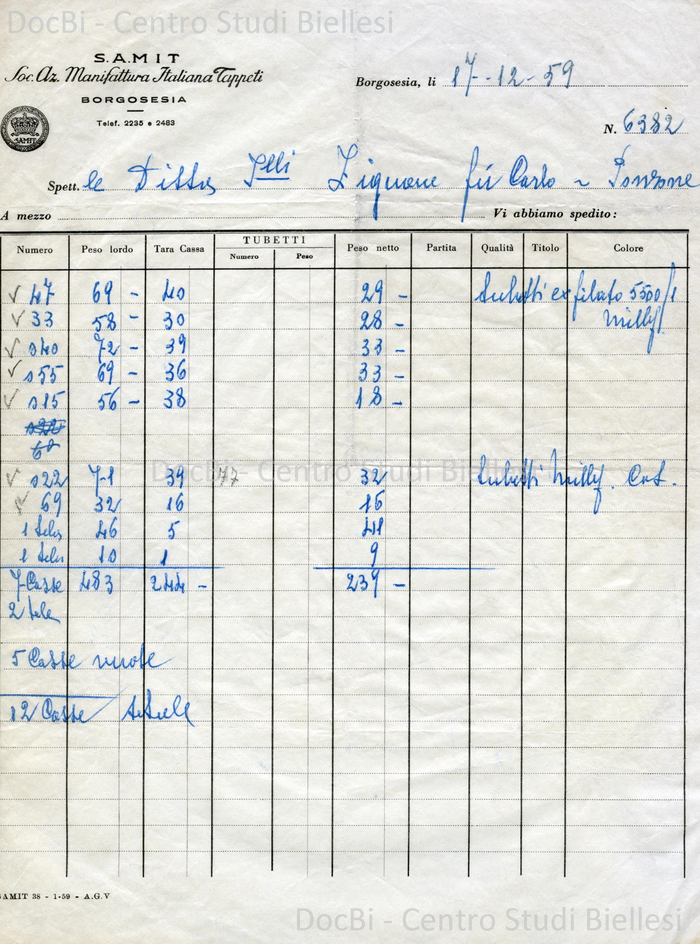 DocBi - Centro Studi Biellesi
S.A.M.I.T
Soc. Az. Manifattura Italiana Tappeti
BORGOSESIA
Telef. 2235 e 2483
SAMIT
Borgosesia, li 17-12-59
N. 6382
Spett. le Ditta F.lli Zignone fu Carlo - Ponzone
A mezzo Vi abbiamo spedito:
Numero Peso lordo Tara Cassa TUBETTI Numero Peso Peso netto Partita Qualità Titolo Colore
47 69 - 40 29 - Tubetti ex filato 5500/1
33 58 - 30 28 - Milly
140 72 - 39 33 -
155 69 - 36 33 -
115 56 - 38 18 -
122
69
122 71 39 177 32 Tubetti Milly. Cot.
DocBi - Centro Studi Biellesi
69 32 16 16
1 tela 46 5 41
1 tela 10 1 9
7 Casse 483 244 - 239 -
2 tele
5 Casse vuote
12 Casse
SAMIT 38 - 1-59 - A.G.V
DocBi - Centro Studi Biellesi